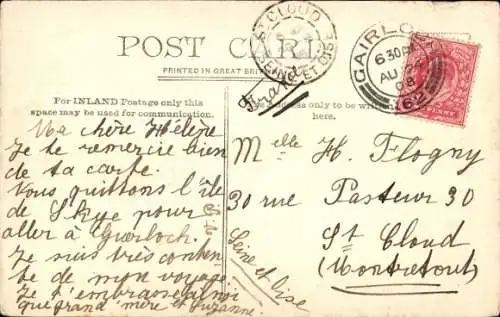 POST CARD
PRINTED IN GREAT BRIT
For INLAND Postage only this
space may be used for communication.
s only to be written
here.
ST CLOUD
SEINE ET OISE
GAIRLO
6 30PM
AU 24
08
62
Ma chère Hélène
Je te remercie bien
de ta carte.
Vous quittons l'île
de Skye pour
aller à Gairloch.
Je suis très conten
te de mon voyage
Je t'embrasse ainsi
que grand mère et Suzanne.
Melle H. Flogny
30 rue Pasteur 30
St Cloud
(Montretout)
Seine et Oise